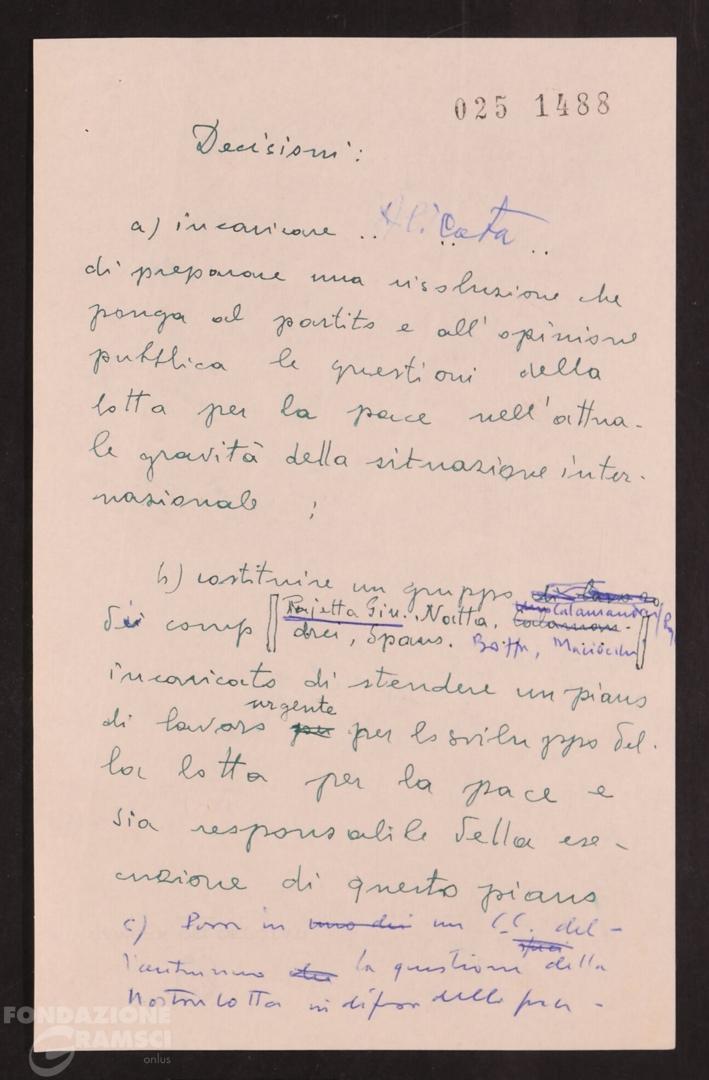 025 1488
Decisioni:
a) incaricare .. Alicata ..
di preparare una risoluzione che
ponga al partito e all'opinione
pubblica le questioni della
lotta per la pace nell'attua-
le gravità della situazione inter-
nazionale ;
b) costituire un gruppo
di comp [Pajetta Giu. Natta, Calamandrei, Spano. Boffa,
incaricato di stendere un piano
urgente
di lavoro per lo sviluppo del-
la lotta per la pace e
sia responsabile della ese-
cuzione di questo piano
c) Porre in un C.C. del-
l'autunno la questione della
nostra lotta in difesa della pace -
FONDAZIONE
GRAMSCI
onlus